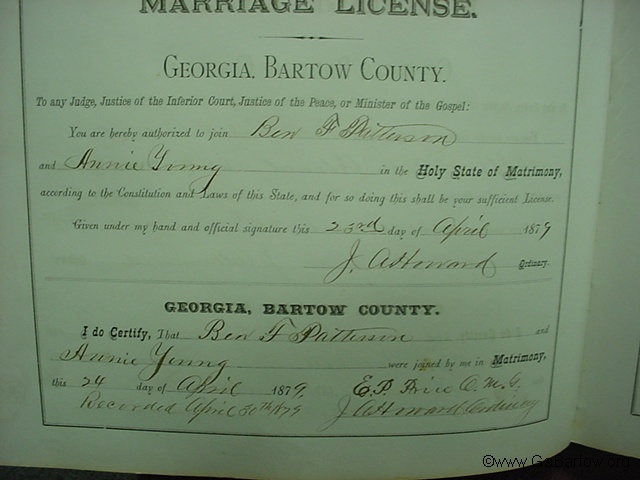 MARRIAGE LICENSE.
GEORGIA, BARTOW COUNTY.
To any Judge, Justice of the Inferior Court, Justice of the Peace, or Minister of the Gospel:
You are hereby authorized to join Ben F Patterson
and Annie Young in the Holy State of Matrimony,
according to the Constitution and Laws of this State, and for so doing this shall be your sufficient License.
Given under my hand and official signature this 23rd day of April 1879
J. A Howard Ordinary.
GEORGIA, BARTOW COUNTY.
I do Certify, That Ben F Patterson and
Annie Young were joined by me in Matrimony,
this 24 day of April 1879, E. P. Price O. M. G.
Recorded April 30th 1879 J A Howard Ordinary
©www.GaBartow.org